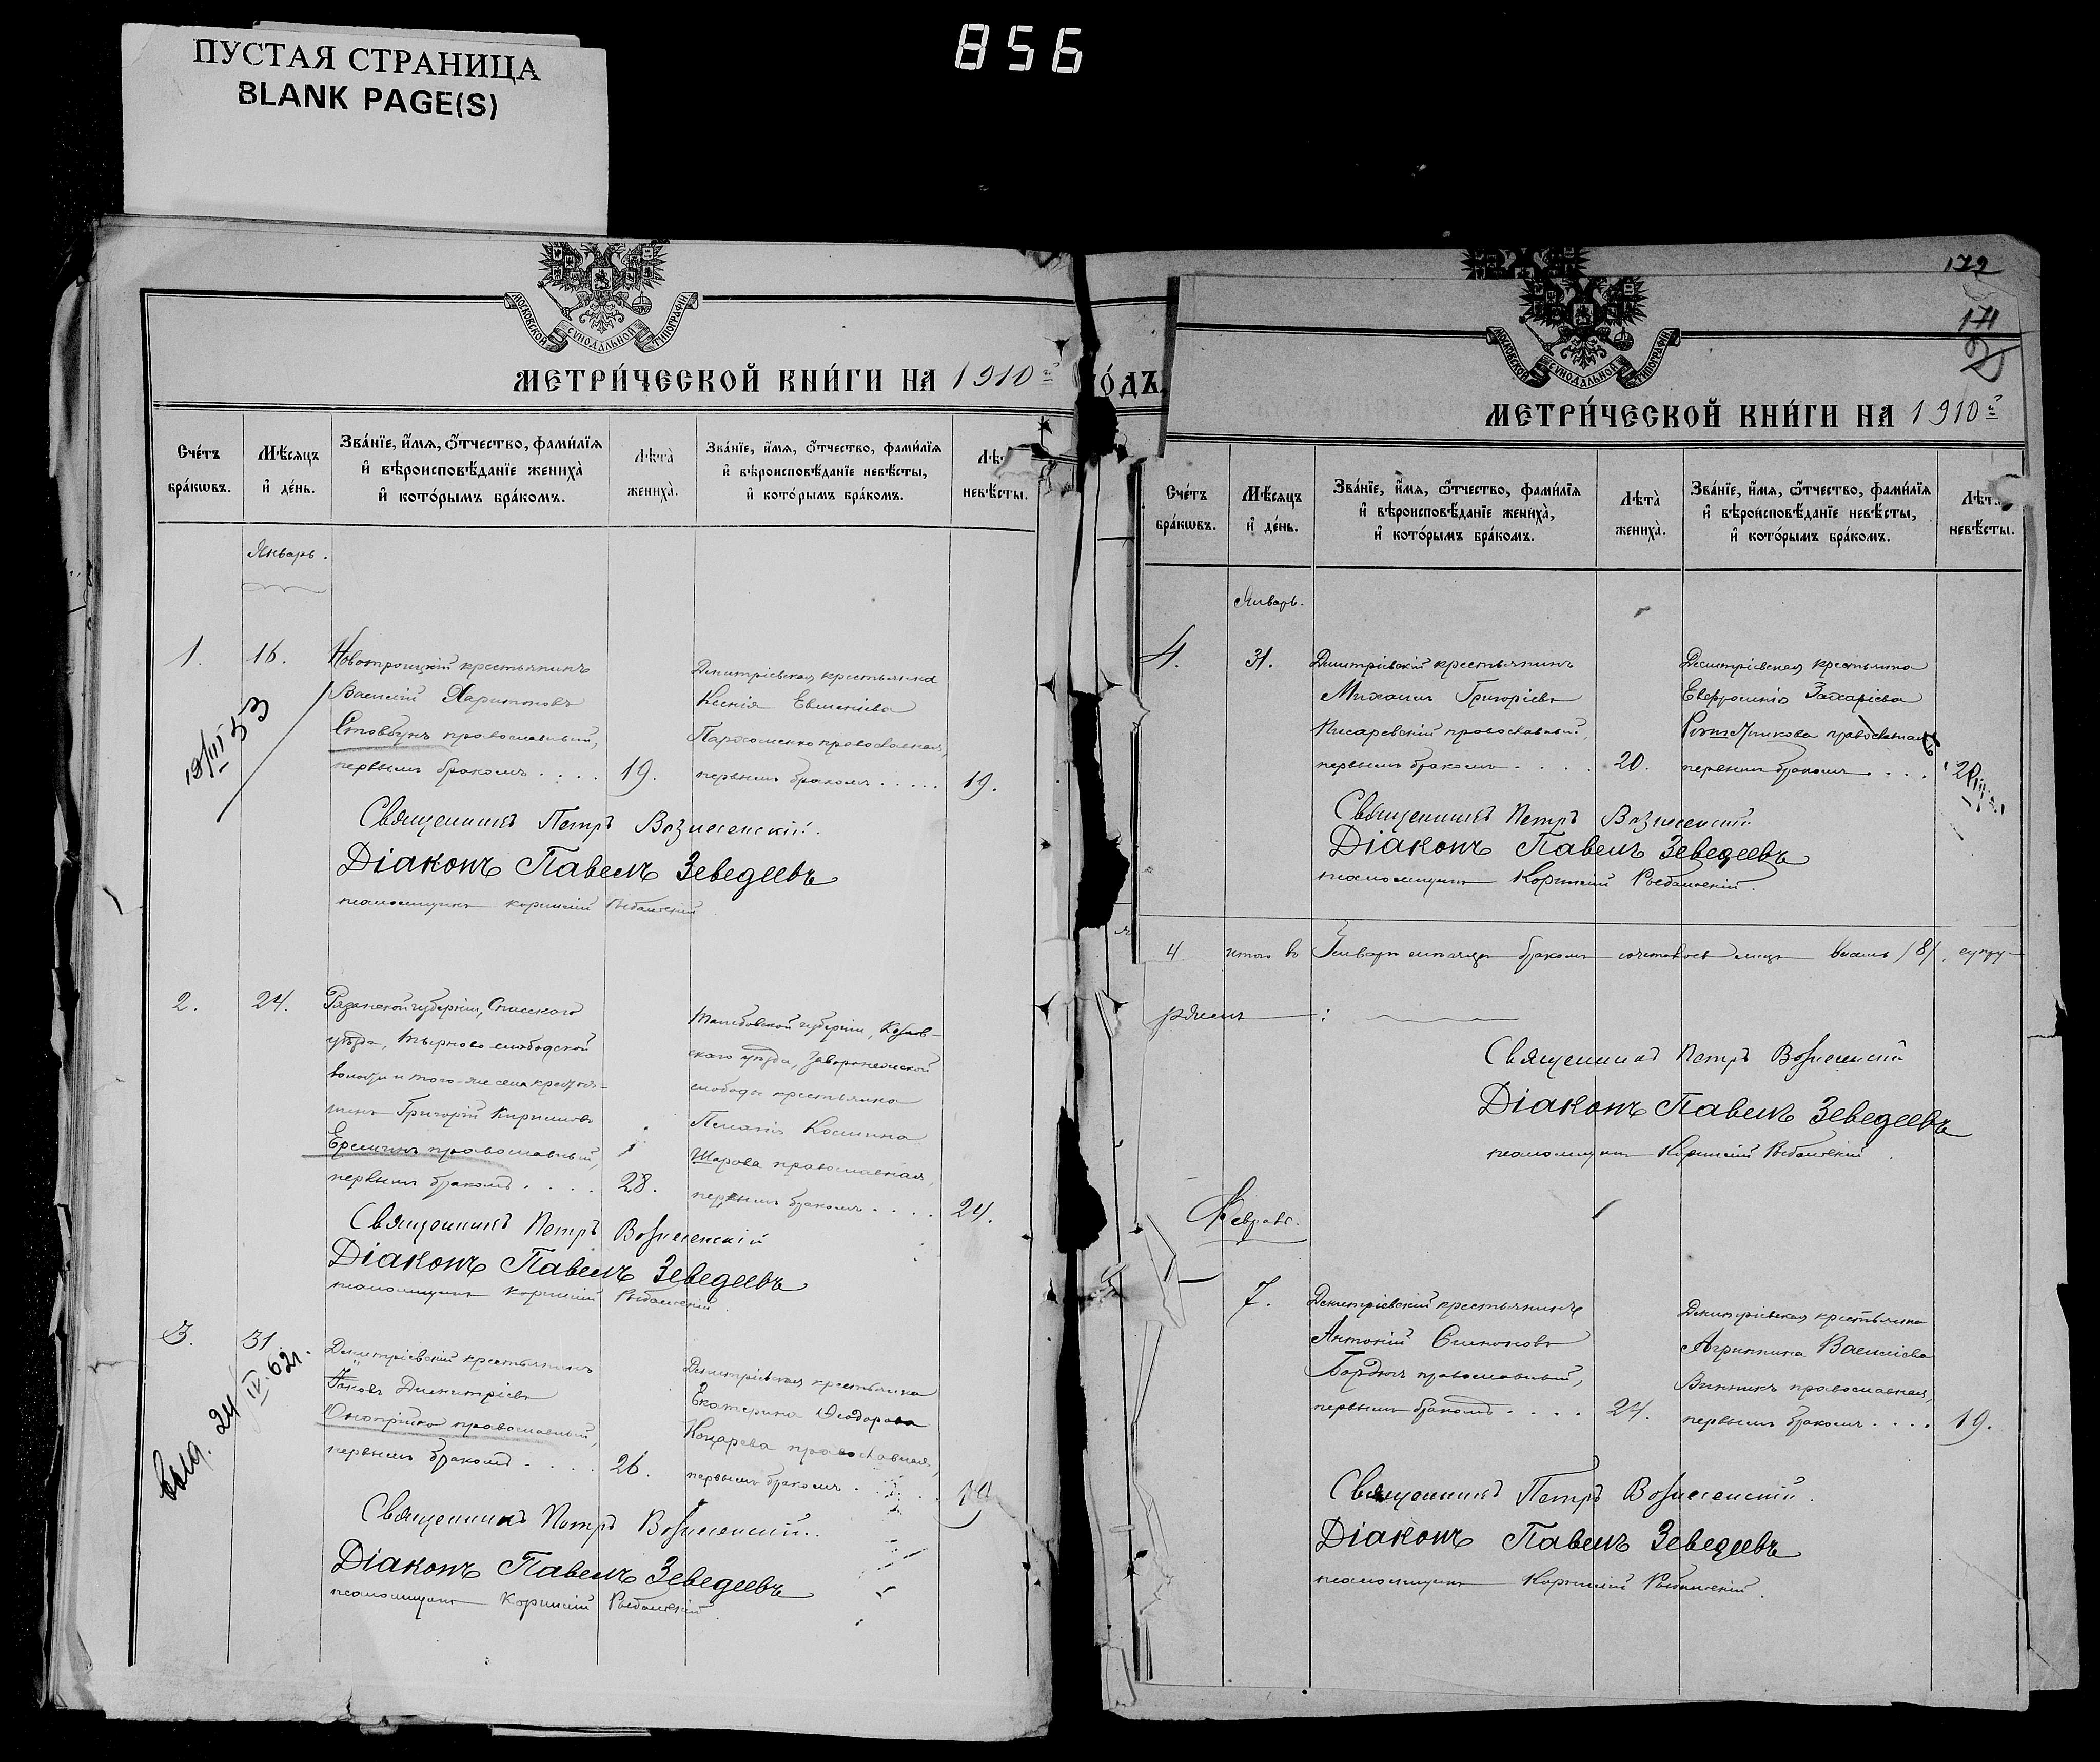 856
ПУСТАЯ СТРАНИЦА
BLANK PAGE(S)
МОСКОВСКОЙ СѴНОДАЛЬНОЙ ТИПОГРАФІИ
МЕТРИ́ЧЕСКОЙ КНИ́ГИ НА 1910й
Сче́тъ бра́кѡвъ.
Мѣ́сяцъ и҆ де́нь.
Зва́нїе, и҆́мѧ, ѻ҆́тчество, фами́лїѧ
и҆ вѣроисповѣ́данїе жениха̀
и҆ кото́рымъ бра́комъ.
Лѣта̀ жениха̀.
Зва́нїе, и҆́мѧ, ѻ҆́тчество, фами́лїѧ
и҆ вѣроисповѣ́данїе невѣ́сты,
и҆ кото́рымъ бра́комъ.
невѣ́сты.
Январь.
1. 16. Новотроицкій крестьянинъ
Василій Харитоновъ
Стовбунъ православный,
первымъ бракомъ . . . . 19.
Димитріевская крестьянка
Ксенія Евменіева
Пархоменко православная,
первымъ бракомъ . . . . . 19.
19/III 53
Священникъ Петръ Вознесенскій.
Діаконъ Павелъ Зеведеевъ
псаломщикъ
2. 24. Рязанской губерніи, Спасскаго
уѣзда, Тырново-слободской
волости и того-же села крестья-
нинъ Григорій Кириловъ
Еремкинъ православный,
первымъ бракомъ . . . . 28.
Тамбовской губерніи, Козлов-
скаго уѣзда, Заворонежской
слободы крестьянка
Пелагія Космина
Шарова православная,
первымъ бракомъ . . . . 24.
Священникъ Петръ Вознесенскій
Діаконъ Павелъ Зеведеевъ
псаломщикъ
3. 31. Димитріевскій крестьянинъ
Іаковъ Димитріевъ
Оноприйко православный,
первымъ бракомъ . . . . 26.
Димитріевская крестьянка
Екатерина Ѳеодорова
Коцарева православная,
первымъ бракомъ . . . 19
Выд. 24/IV. 62г.
Священникъ Петръ Вознесенскій.
Діаконъ Павелъ Зеведеевъ
псаломщикъ
о́дъ
172
171
МОСКОВСКОЙ СѴНОДАЛЬНОЙ ТИПОГРАФІИ
МЕТРИ́ЧЕСКОЙ КНИ́ГИ НА 1910й
Сче́тъ бра́кѡвъ.
Мѣ́сяцъ и҆ де́нь.
Зва́нїе, и҆́мѧ, ѻ҆́тчество, фами́лїѧ
и҆ вѣроисповѣ́данїе жениха̀,
и҆ кото́рымъ бра́комъ.
Лѣта̀ жениха̀.
Зва́нїе, и҆́мѧ, ѻ҆́тчество, фами́лїѧ
и҆ вѣроисповѣ́данїе невѣ́сты,
и҆ кото́рымъ бра́комъ.
невѣ́сты.
Январь.
4. 31. Димитріевскій крестьянинъ
Михаилъ Григоріевъ
Писаревскій православный,
первымъ бракомъ . . . . 20.
Димитріевская крестьянка
Евфросинія Захаріева
православная
первымъ бракомъ . . .
Священникъ Петръ Вознесенскій
Діаконъ Павелъ Зеведеевъ
псаломщикъ
4. итого въ Январѣ мѣсяцѣ бракомъ лицъ восемь /8/, супру-
Священникъ Петръ Вознесенскій
Діаконъ Павелъ Зеведеевъ
псаломщикъ
Февраль.
7. Димитріевскій крестьянинъ
Антоній Симоновъ
Бордюгъ православный,
первымъ бракомъ . . . . 24.
Димитріевская крестьянка
Агриппина Василіева
Винникъ православная,
первымъ бракомъ . . . . 19.
Священникъ Петръ Вознесенскій.
Діаконъ Павелъ Зеведеевъ
псаломщикъ